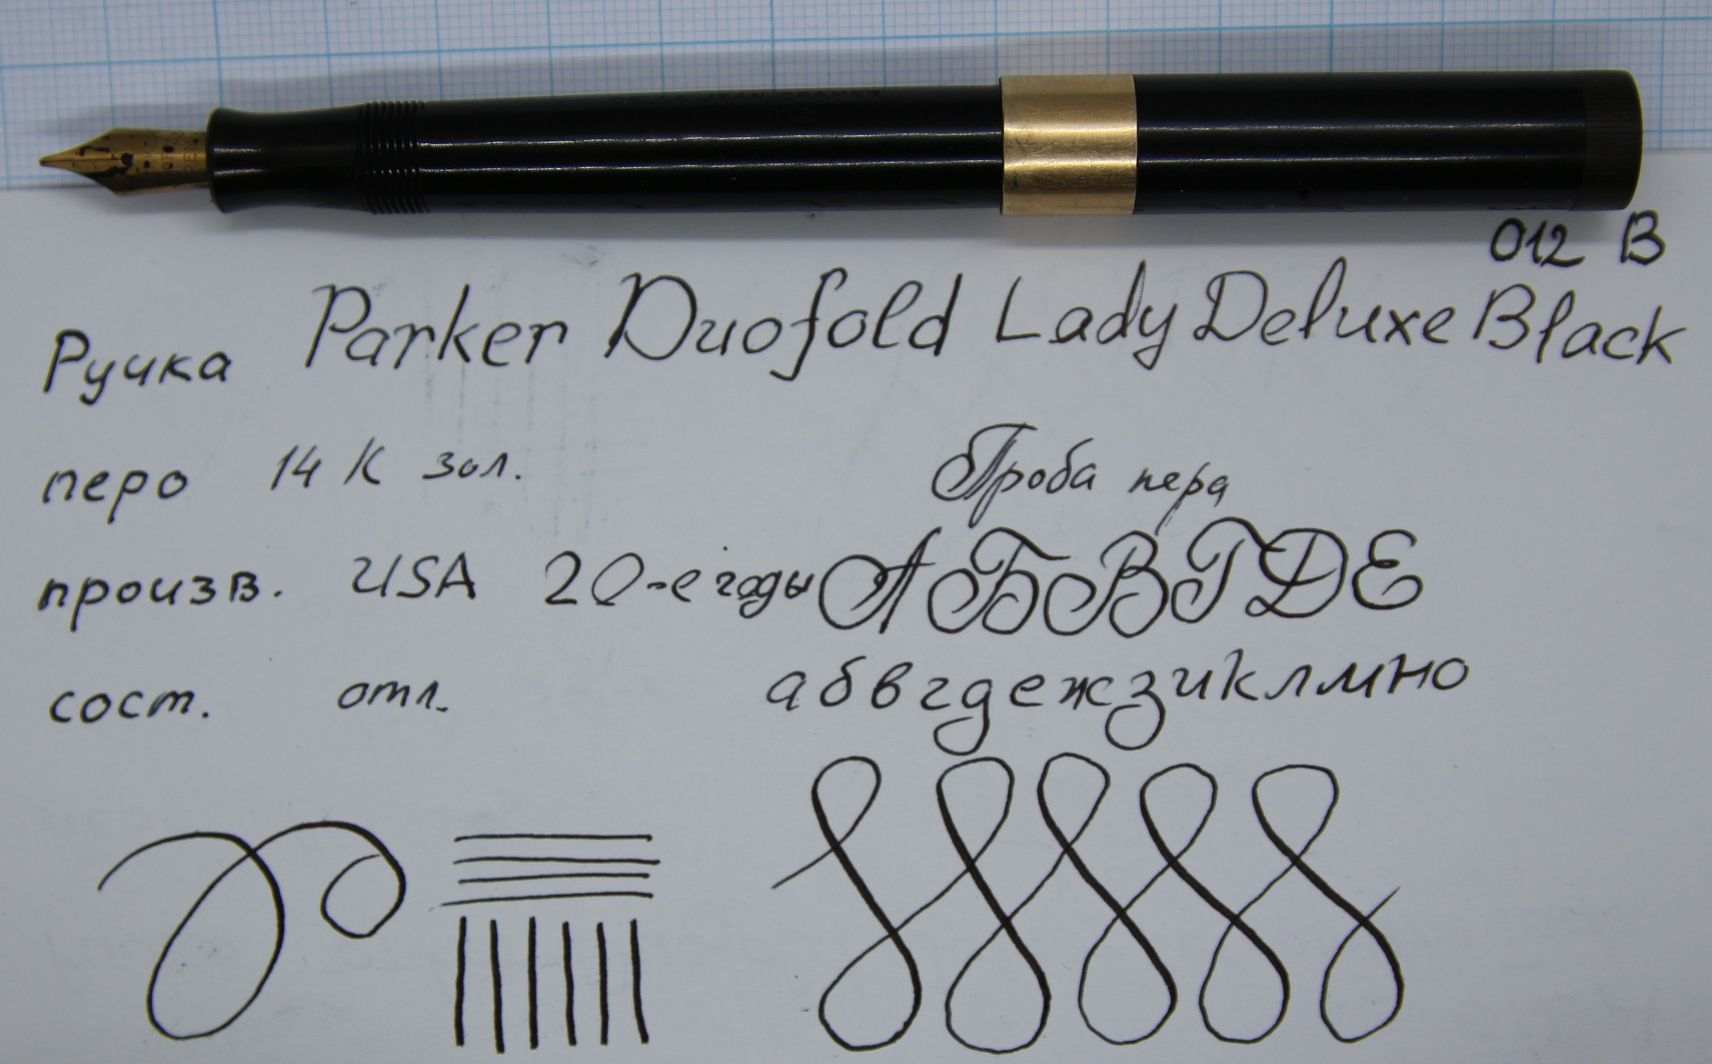 012 В
Ручка Parker Duofold Lady Deluxe Black
перо 14 К зол.
Проба пера
произв. USA 20-е годы
АБВГДЕ
сост. отл.
абвгдежзиклмно